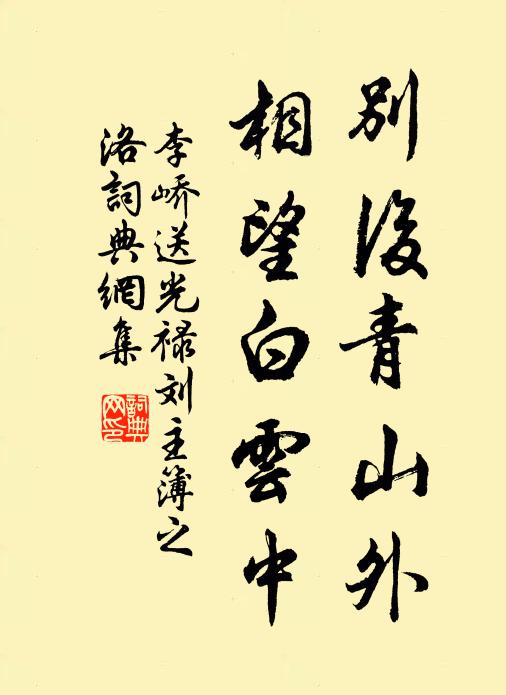 別後青山外
相望白雲中
李嶠送光祿刘主簿之
洛詞典網集
詞典
网印